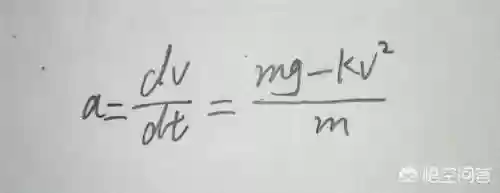 a = dv/dt = (mg - kv²)/m
悟空问答